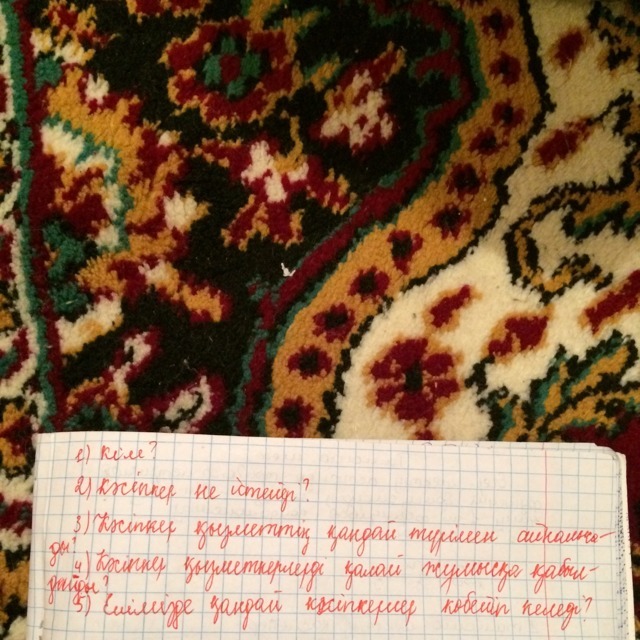 1) кім?
2) кәсіпкер не істейді?
3) Кәсіпкер қызметтің қандай түрімен айналыса-
ды?
4) Кәсіпкер қызметкерлерді қалай жұмысқа қабыл-
дайды?
5) Елімізде қандай кәсіпкерлер көбейіп келеді?